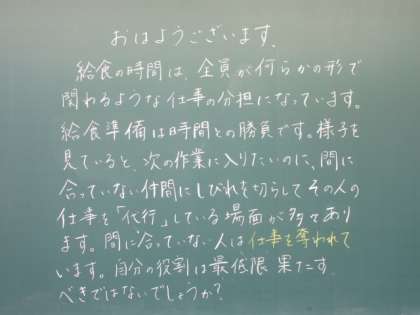 おはようございます。
給食の時間は、全員が何らかの形で
関わるような仕事の分担になっています。
給食準備は時間との勝負です。様子を
見ていると、次の作業に入りたいのに、間に
合っていない仲間にしびれを切らしてその人の
仕事を「代行」している場面が多々あり
ます。間に合っていない人は仕事を奪われて
います。自分の役割は最低限果たす
べきではないでしょうか?